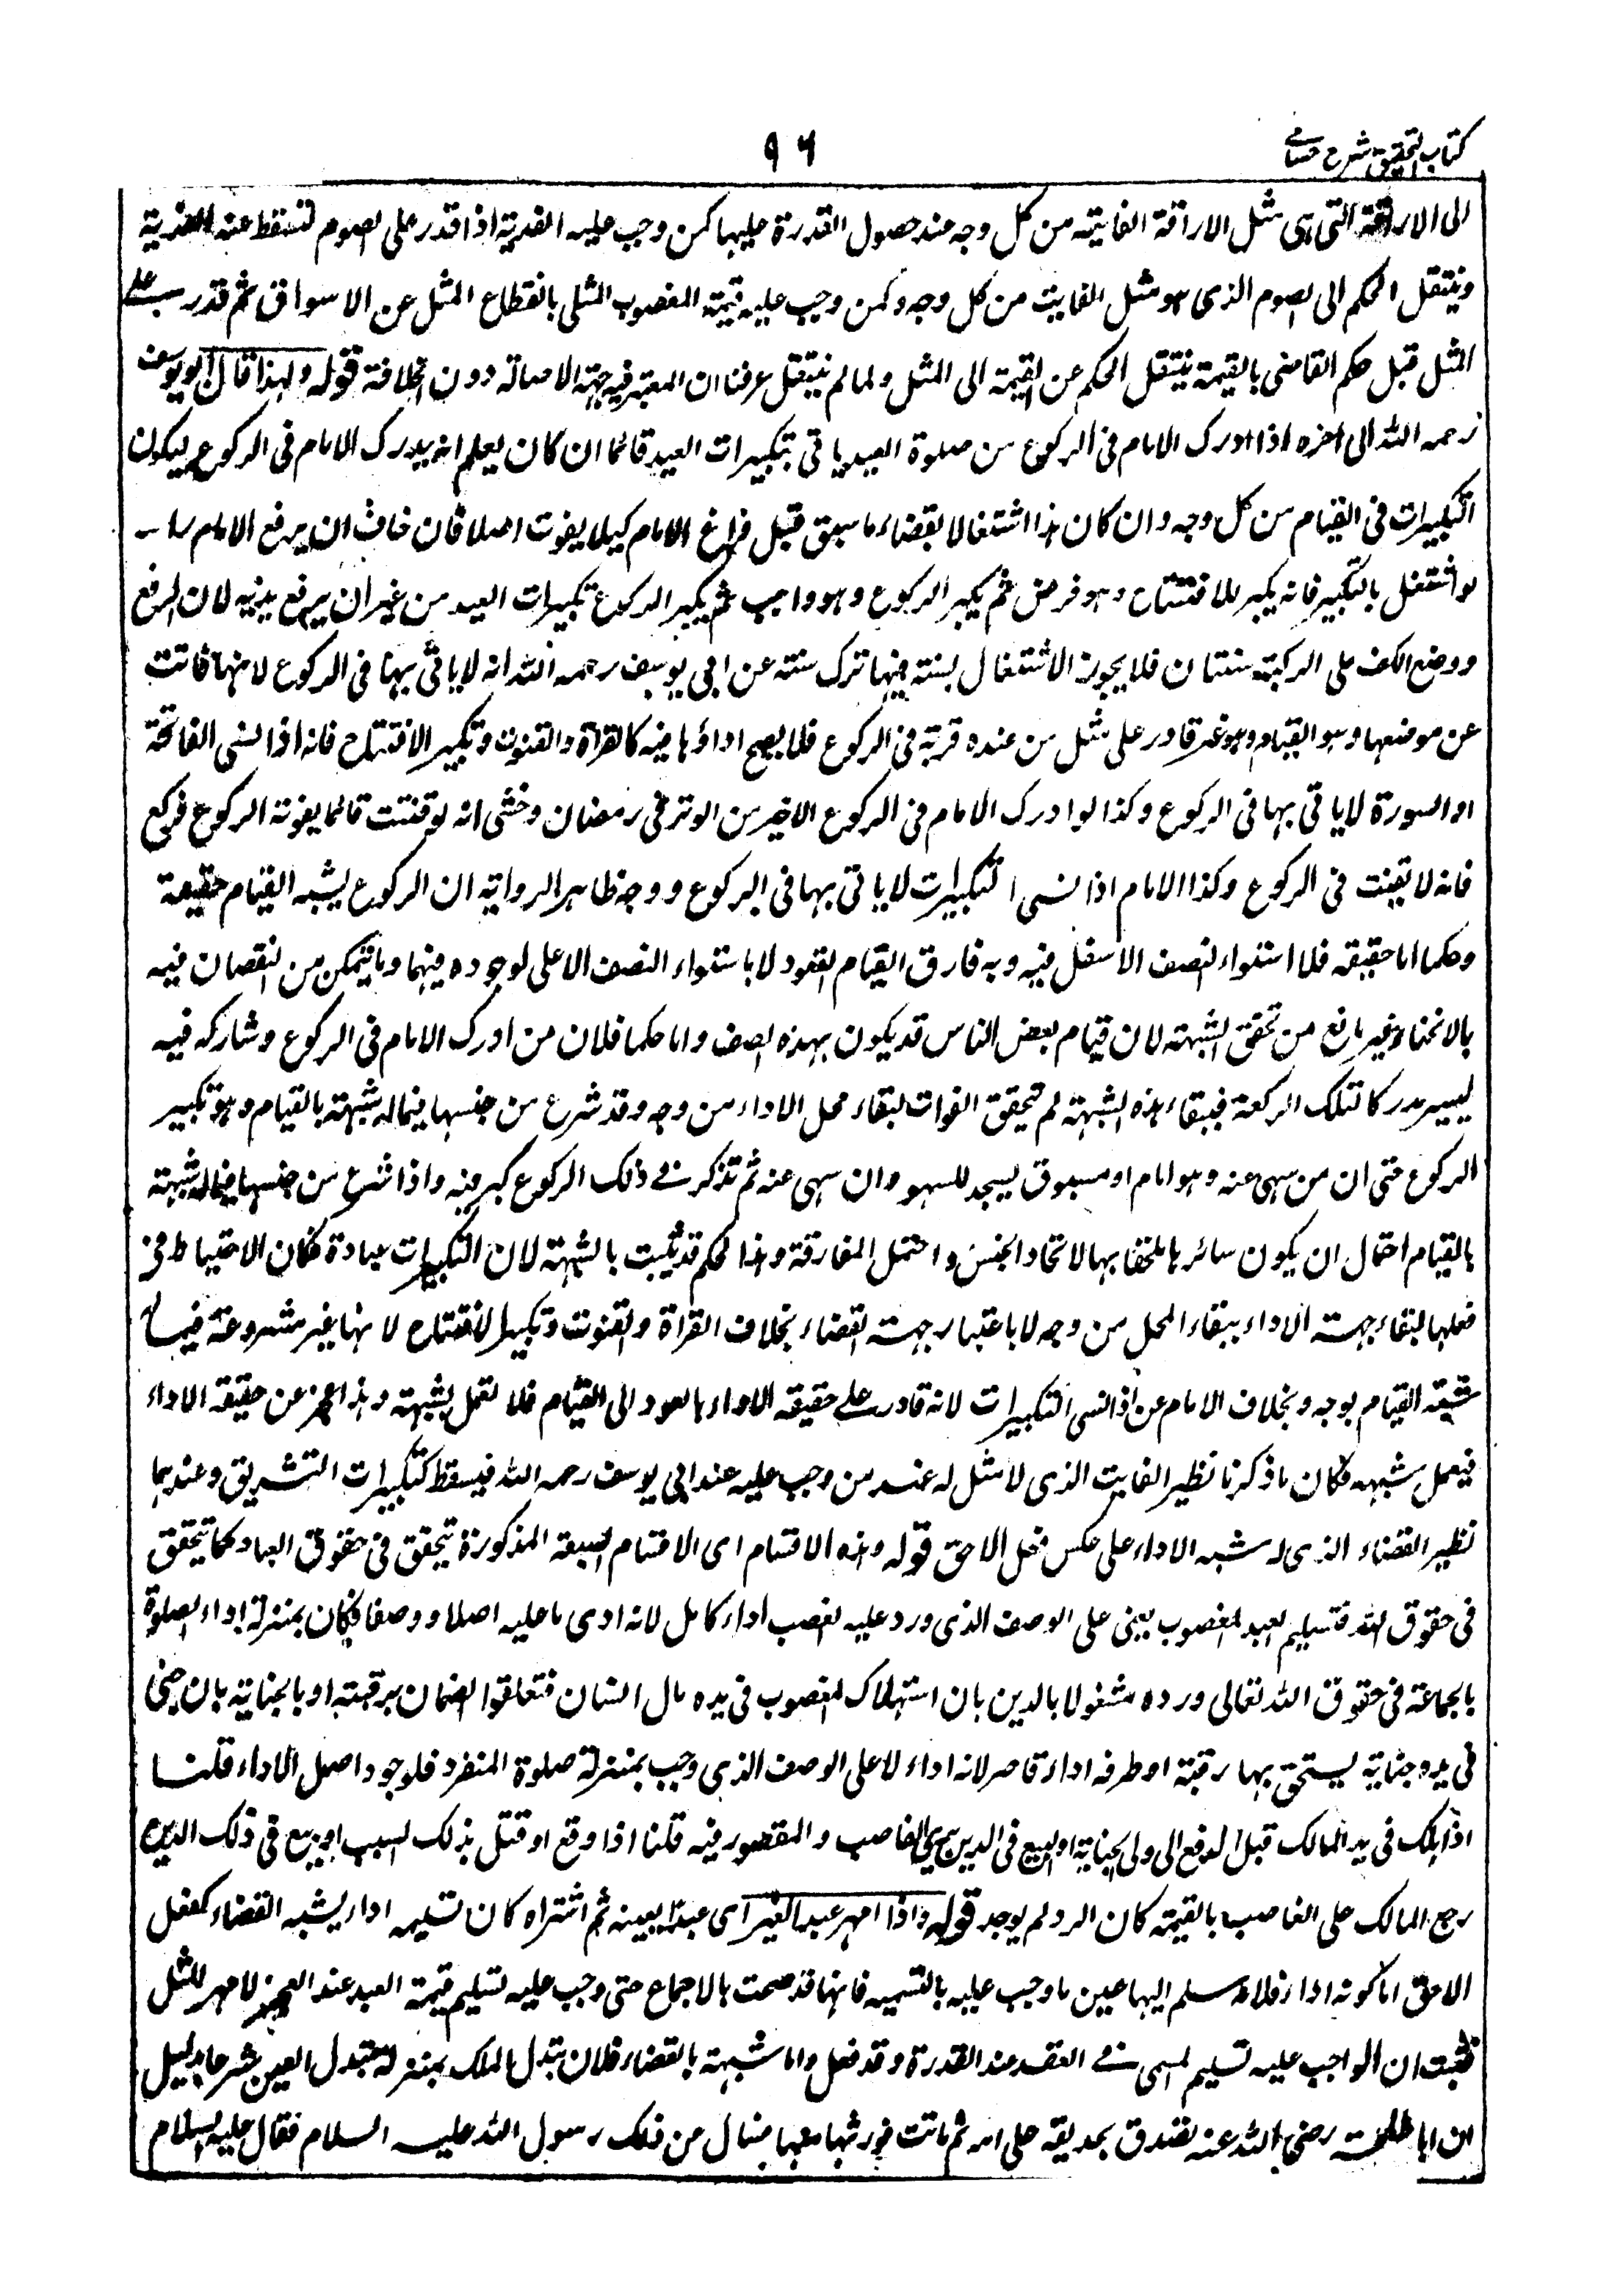 كتاب التحقيق شرح حسامى
٩٦
الى الاراقة التى هى مثل الاراقة الفايتة من كل وجه عند حصول القدرة عليها كمن وجب عليه الفدية اذا قدر على الصوم تسقط عنه الفدية
وينتقل الحكم الى الصوم الذى هو مثل الفايت من كل وجه وكمن وجب عليه قيمة المغصوب المثلى بانقطاع المثل عن الاسواق ثم قدر على
المثل قبل حكم القاضى بالقيمة ينتقل الحكم عن القيمة الى المثل ولما لم ينتقل عرفنا ان المعتبر فيه جهة الاصالة دون الخلافة قوله ولهذا قال ابو يوسف
رحمه الله الى اخره اذا ادرك الامام فى الركوع من صلوة العيد ياتى بتكبيرات العيد قائما ان كان يعلم انه يدرك الامام فى الركوع ليكون
التكبيرات فى القيام من كل وجه وان كان هذا اشتغالا بقضاء ما سبق قبل فراغ الامام كيلا يفوت اصلا فان خاف ان يرفع الامام راسه
لو اشتغل بالتكبير فانه يكبر للافتتاح وهو فرض ثم يكبر الركوع وهو واجب ثم يكبر الركوع تكبيرات العيد من غير ان يرفع يديه لان الرفع
ووضع الكف على الركبة سنتان فلا يجوز الاشتغال بسنة فيها ترك سنة عن ابى يوسف رحمه الله انه لا ياتى بها فى الركوع لانها فاتت
عن موضعها وهو القيام وهو غير قادر على مثل من عنده قربة فى الركوع فلا يصح اداؤها فيه كالقراة والقنوت وتكبير الافتتاح فانه اذا نسى الفاتحة
او السورة لا ياتى بها فى الركوع وكذا لو ادرك الامام فى الركوع الاخير من الوتر فى رمضان وخشى انه لو قنتت قائما يفوته الركوع فركع
فانه لا يقنت فى الركوع وكذا الامام اذا نسى التكبيرات لا ياتى بها فى الركوع ووجه ظاهر الرواية ان الركوع يشبه القيام حقيقة
وحكما اما حقيقة فلا استواء النصف الاسفل فيه وبه فارق القيام القعود لا باستواء النصف الاعلى لوجوده فيهما وما يتمكن من النقصان فيه
بالانحناء غير مانع من تحقق الشبهة لان قيام بعض الناس قد يكون بهذه الصفة واما حكما فلان من ادرك الامام فى الركوع وشاركه فيه
يصير مدركا لتلك الركعة فببقاء هذه الشبهة لم يتحقق الفوات لبقاء محل الاداء من وجه وقد شرع من جنسها فيما له شبهة بالقيام وهو تكبير
الركوع حتى ان من سهى عنه وهو امام او مسبوق يسجد للسهو وان سهى عنه ثم تذكر فى ذلك الركوع كبر فيه واذا شرع من جنسها فيما له شبهة
بالقيام احتمل ان يكون سائرها ملحقا بها لاتحاد الجنس واحتمل المفارقة وهذا الحكم قد يثبت بالشبهة لان التكبيرات عبادة فكان الاحتياط فى
فعلها لبقاء جهة الاداء ببقاء المحل من وجه لا باعتبار جهة القضاء بخلاف القراة والقنوت وتكبير الافتتاح لانها غير مشروعة فيما
شبيه القيام بوجه وبخلاف الامام عن اذا نسى التكبيرات لانه قادر على حقيقة الاداء بالعود الى القيام فلا تعمل بشبهة وهذا عجز عن حقيقة الاداء
فيعمل بشبهه فكان ما ذكرنا نظير الفايت الذى لا مثل له عند من وجب عليه عند ابى يوسف رحمه الله فيسقط كتكبيرات التشريق وعندهما
نظير القضاء الذى له شبه الاداء على عكس فعل اللاحق قوله وهذه الاقسام اى الاقسام السبعة المذكورة يتحقق فى حقوق العباد كما يتحقق
فى حقوق الله فتسليم العبد المغصوب يعنى على الوصف الذى ورد عليه الغصب اداء كامل لانه ادى ما عليه اصلا ووصفا فكان بمنزلة اداء الصلوة
بالجماعة فى حقوق الله تعالى ورده مشغولا بالدين بان استهلاك المغصوب فى يده مال انسان فتعلقوا الضمان برقبته او بالجناية بان جنى
فى يده جناية يستحق بها رقبة او طرفه اداء قاصر لانه اداء لا على الوصف الذى وجب بمنزلة صلوة المنفرد فلوجود اصل الاداء قلنا
اذا هلك فى يد المالك قبل الدفع الى ولى الجناية او البيع فى الدين برى الغاصب والمقصور فيه قلنا اذا وقع او قتل بذلك السبب او بيع فى ذلك الدين
رجع المالك على الغاصب بالقيمة كان الرد لم يوجد قوله واذا امهر عبد الغير اى عبدا بعينه ثم اشتراه كان تسليمه اداء يشبه القضاء كفعل
اللاحق اما كونه اداء فلانه سلم اليها عين ما وجب عليه بالتسمية فانها قد صحت بالاجماع حتى وجب عليه تسليم قيمة العبد عند العجز لا مهر المثل
فثبت ان الواجب عليه تسليم المسمى فى العقد عند القدرة وقد فعل واما شبهة بالقضاء فلان تبدل الملك بمنزلة تبدل العين شرعا بدليل
ان ابا طلحة رضى الله عنه تصدق بحديقة على امه ثم ماتت فورثها منها فسال من ذلك رسول الله عليه السلام فقال عليه السلام